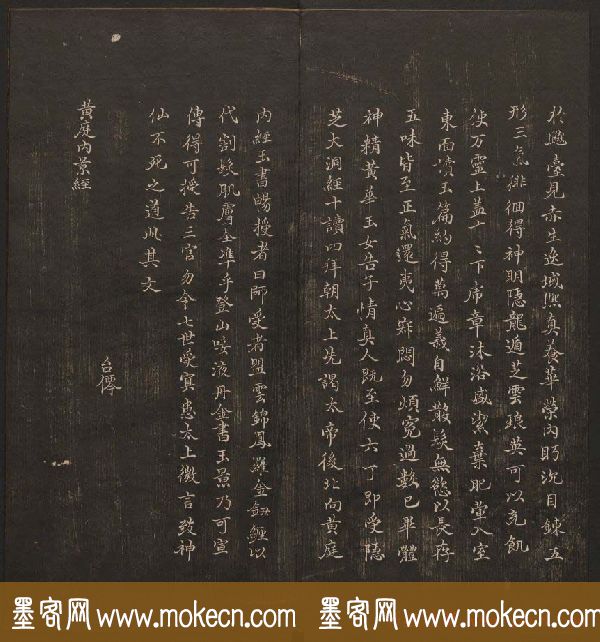 於飈臺見赤生逸域熙真養華榮內盻沉目鍊五
形三氣徘徊得神明隱龍遁芝雲琅英可以充飢
使万靈上蓋十二下席章沐浴盛潔棄肥薰入室
東面誦玉篇約得萬遍義自鮮散髮無慾以長存
五味皆至正氣還夷心寂悶勿煩冤過數已畢體
神精黃華玉女告子情真人既至使六丁即受隱
芝大洞經十讀四拜朝太上先謁太帝後北向黃庭
內經玉書暢授者曰師受者盟雲錦鳳羅金鈕纏以
代割髮肌膚全準乎登山歃液丹金書玉景乃可宣
傳得可授告三官勿令七世受冥患太上微言致神
仙不死之道此其文
台僊
黃庭內景經
墨客网 www.mokecn.com 墨客网 www.mokecn.com